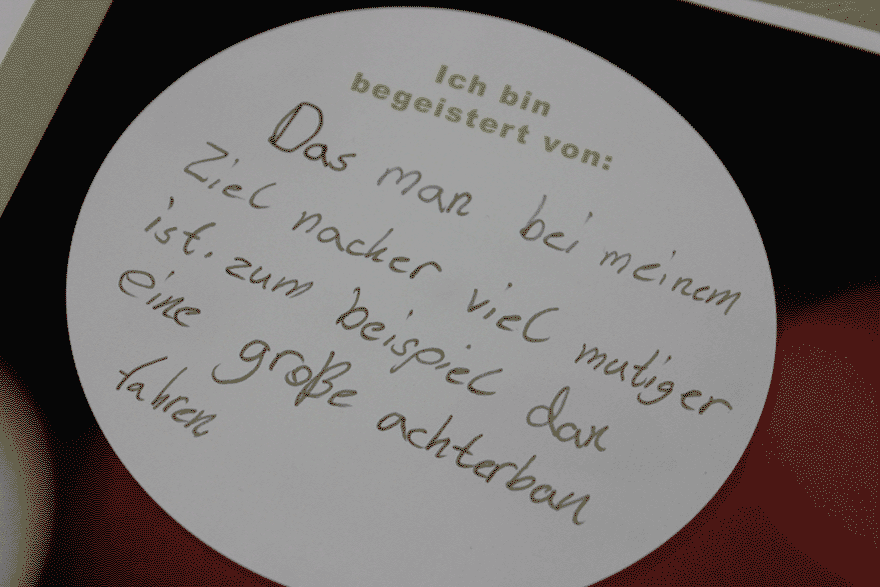 Ich bin
begeistert von:
Das man bei meinem
Ziel nacker viel mutiger
ist. zum beispiel dan
eine große achterban
fahren